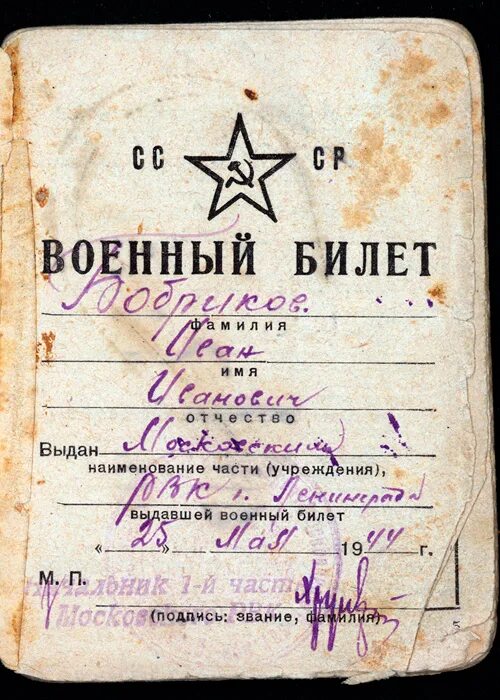 СС СР
ВОЕННЫЙ БИЛЕТ
Бобриков.
фамилия
Иван
имя
Иванович
отчество
Выдан Московским
наименование части (учреждения),
РВК г. Ленинграда
выдавшей военный билет
« 25 » Мая 1944 г.
М. П.
Начальник 1-й част
Московского РВК
(подпись: звание, фамилия)
5